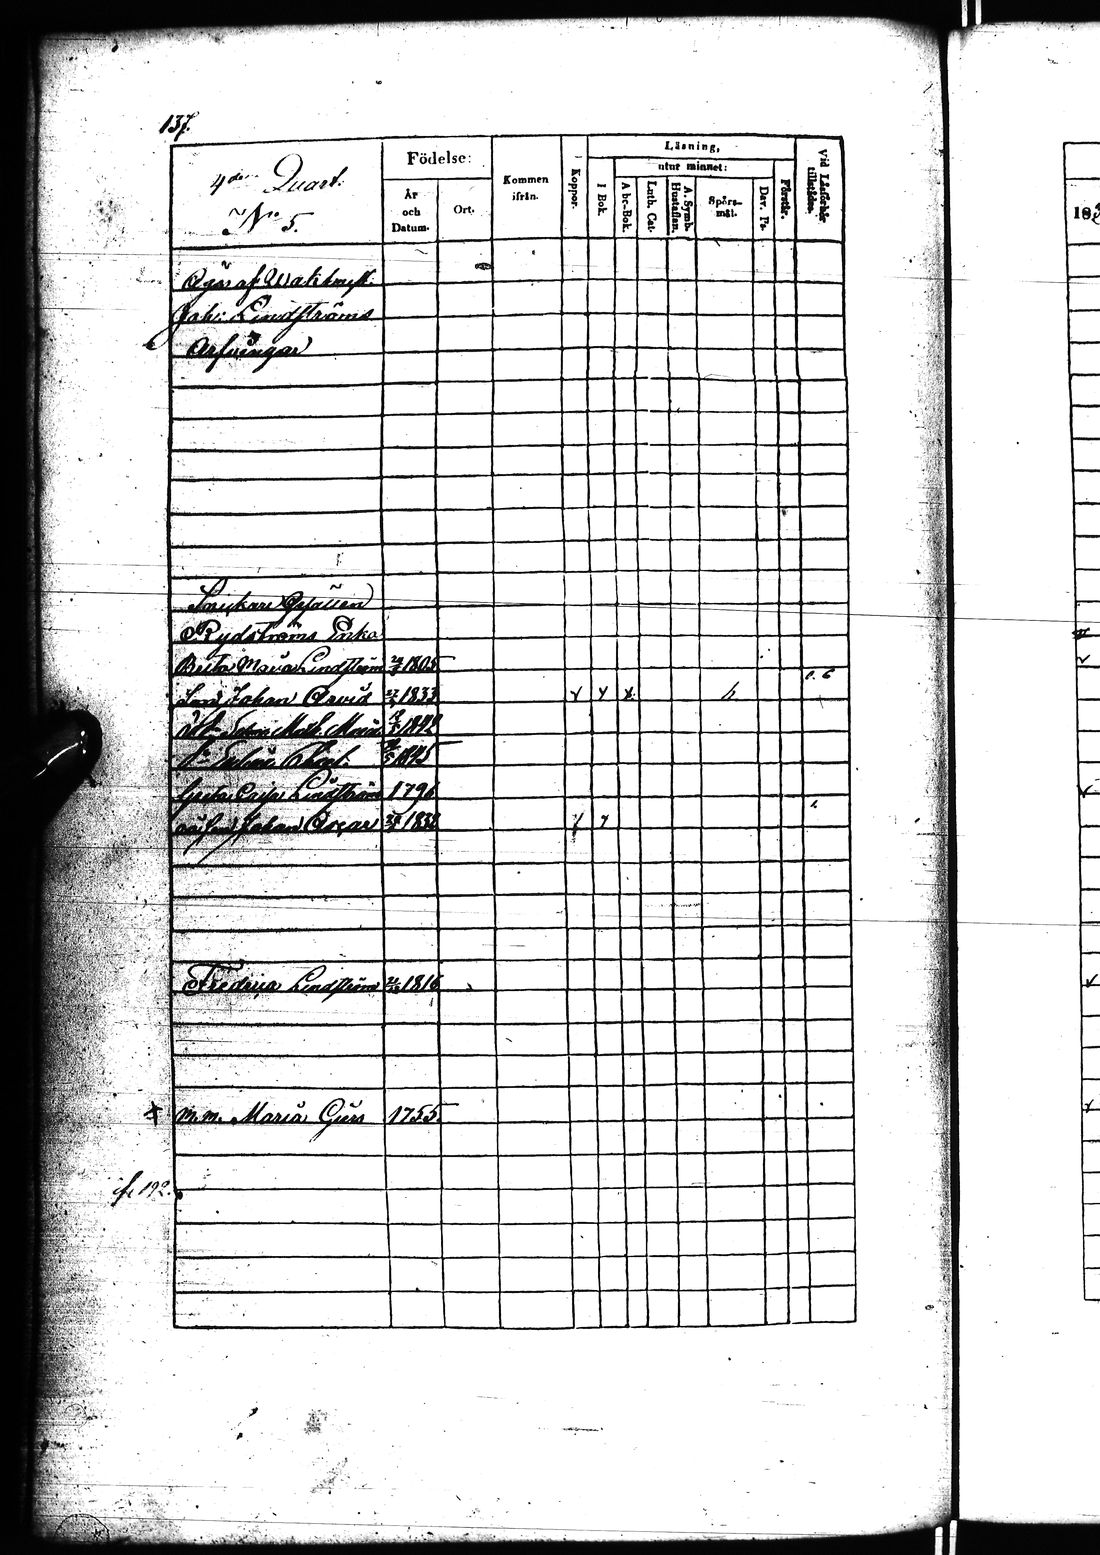 137.
4de Quart.
No 5.
Födelse:
År
och
Datum.
Ort.
Kommen
ifrån.
Koppor.
Läsning,
utur minnet:
I Bok.
Abc-Bok.
Luth. Cat.
A. Symb.
Hustaflan.
Spörs-
mål.
Dav. Ps.
Förstår.
Vid Läsförhör
tillstädes.
18
Äges af Waktmäst.
Joh: Lindströms
Arfvingar
Snickare Gesällen
Rydströms Enka
Brita Maria Lindström 1805
Son Johan Arvid 1833
Math. Maria 1842
1845
Greta Cajsa Lindström 1796
Johan Oscar 1838
Fredrica Lindström 1816
m.m. Maria Gers 1755.
192.